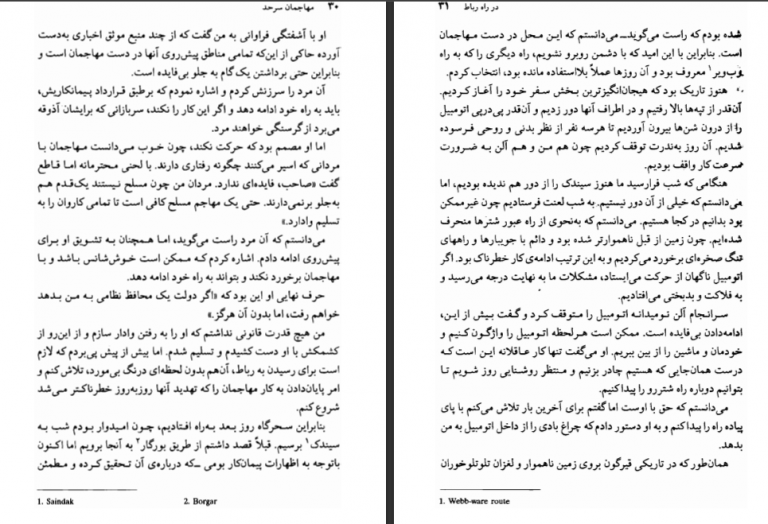 ۳۰ مهاجمان سرحد
او با آشفتگی فراوانی به من گفت که از چند منبع موثق اخباری به‌دست
آورده حاکی از این‌که تمامی مناطق پیش‌روی آنها در دست مهاجمان است و
بنابراین حتی برداشتن یک گام به جلو بی‌فایده است.
آن مرد را سرزنش کردم و اشاره نمودم که برطبق قرارداد پیمانکاریش،
باید به راه خود ادامه دهد و اگر این کار را نکند، سربازانی که برایشان آذوقه
می‌برد از گرسنگی خواهند مرد.
اما او مصمم بود که حرکت نکند، چون خوب می‌دانست مهاجمان با
مردانی که اسیر می‌کنند چگونه رفتاری دارند. با لحنی محترمانه اما قاطع
گفت «صاحب، فایده‌ای ندارد. مردان من چون مسلح نیستند یک‌قدم هم
به‌جلو برنمی‌دارند. حتی یک مهاجم مسلح کافی است تا تمامی کاروان را به
تسلیم وادارد.»
می‌دانستم که آن مرد راست می‌گوید، اما همچنان به تشویق او برای
پیش‌روی ادامه دادم. اشاره کردم که ممکن است خوش‌شانس باشد و با
مهاجمان برخورد نکند و بتواند به راه خود ادامه دهد.
حرف نهایی او این بود که «اگر دولت یک محافظ نظامی به من بدهد
خواهم رفت، اما بدون آن هرگز.»
من هیچ قدرت قانونی نداشتم که او را به رفتن وادار سازم و از این‌رو از
کشمکش با او دست کشیدم و تسلیم شدم. اما بیش از پیش پی‌بردم که لازم
است برای رسیدن به رباط، آن‌هم بدون لحظه‌ای درنگ بی‌مورد، تلاش کنم و
امر پایان‌دادن به کار مهاجمان را که تهدید آنها روزبه‌روز خطرناکتر می‌شد
شروع کنم.
بنابراین سحرگاه روز بعد به‌راه افتادیم، چون امیدوار بودم شب به
سیندک۱ برسیم. قبلاً قصد داشتم از طریق بورگار۲ به آنجا برویم اما اکنون
باتوجه به اظهارات پیمان‌کار بومی ــکه درباره‌ی آن تحقیق کرده و مطمئن
1. Saindak 2. Borgar
در راه رباط ۳۱
شده بودم که راست می‌گویدــ می‌دانستم که این محل در دست مهاجمان
است. بنابراین با این امید که با دشمن روبرو نشویم، راه دیگری را که به راه
وب‌ویر۱ معروف بود و آن روزها عملاً بلااستفاده مانده بود، انتخاب کردم.
هنوز تاریک بود که هیجان‌انگیزترین بخش سفر خود را آغاز کردیم.
آن‌قدر از تپه‌ها بالا رفتیم و در اطراف آنها دور زدیم و آن‌قدر پی‌درپی اتومبیل
را از درون شن‌ها بیرون آوردیم تا هرسه نفر از نظر بدنی و روحی فرسوده
شدیم. آن روز به‌ندرت توقف کردیم چون هم من و هم آلن به ضرورت
سرعت کار واقف بودیم.
هنگامی که شب فرارسید ما هنوز سیندک را از دور هم ندیده بودیم، اما
می‌دانستم که خیلی از آن دور نیستیم. به شب لعنت فرستادیم چون غیرممکن
بود بدانیم در کجا هستیم. می‌دانستم که به‌نحوی از راه عبور شترها منحرف
شده‌ایم. چون زمین از قبل ناهموارتر شده بود و دائم با جویبارها و راههای
تنگ صخره‌ای برخورد می‌کردیم و به این ترتیب ادامه‌ی کار خطرناک بود. اگر
اتومبیل ناگهان از حرکت می‌ایستاد، مشکلات ما به نهایت درجه می‌رسید و
به فلاکت و بدبختی می‌افتادیم.
سرانجام آلن نومیدانه اتومبیل را متوقف کرد و گفت بیش از این،
ادامه‌دادن بی‌فایده است. ممکن است هرلحظه اتومبیل را واژگون کنیم و
خودمان و ماشین را از بین ببریم. او می‌گفت تنها کار عاقلانه این است که
درست همان‌جایی که هستیم چادر بزنیم و منتظر روشنایی روز شویم تا
بتوانیم دوباره راه شتررو را پیدا کنیم.
می‌دانستم که حق با اوست اما گفتم برای آخرین بار تلاش می‌کنم با پای
پیاده راه را پیدا کنم و به او دستور دادم که چراغ بادی را از داخل اتومبیل به من
بدهد.
همان‌طور که در تاریکی قیرگون بروی زمین ناهموار و لغزان تلوتلوخوران
1. Webb-ware route